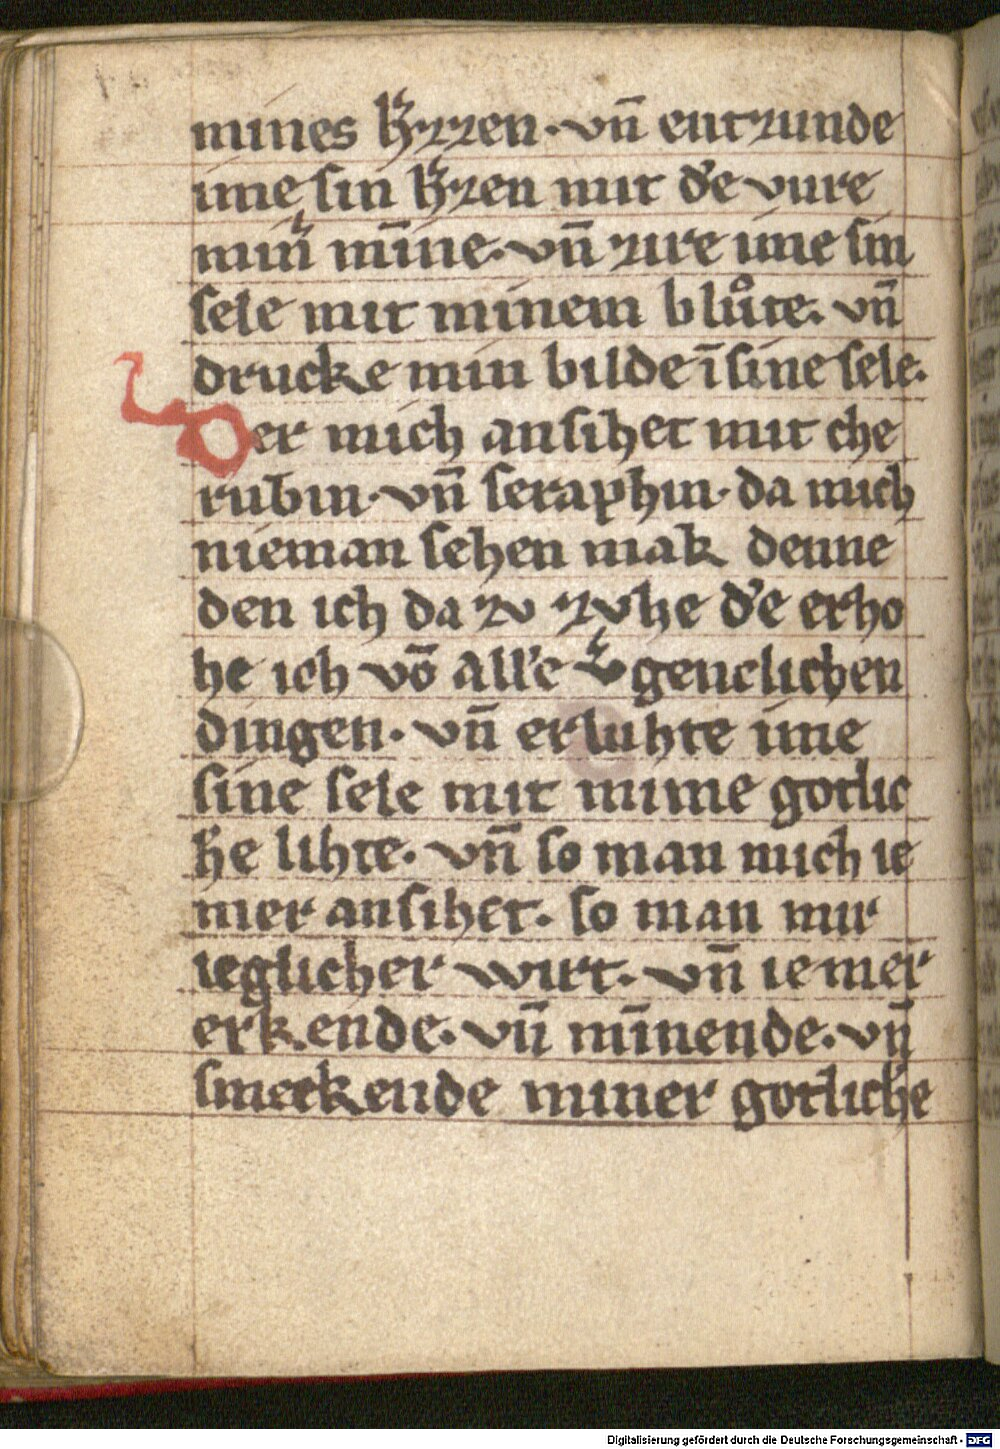 mines h̾zzen · vn̄ entzunde
ime sin h̾zen mit d̾e vure
min̾ mīne · vn̄ zire ime sin
sele mit minem blůte · vn̄
drucke min bilde ī sine sele ·
Der mich ansihet mit che
rubin · vn̄ seraphin · da mich
nieman sehen mak denne
den ich da zv zvhe d̾e erho
he ich vō all̾e v̾genclichen
dingen · vn̄ erluhte ime
sine sele mit mime gotlic
he lihte · vn̄ so man mich ie
mer ansihet · so man mir
ieglicher wirt · vn̄ ie mer
erkende · vn̄ mīnende · vn̄
smeckende miner gotliche
Digitalisierung gefördert durch die Deutsche Forschungsgemeinschaft - DFG